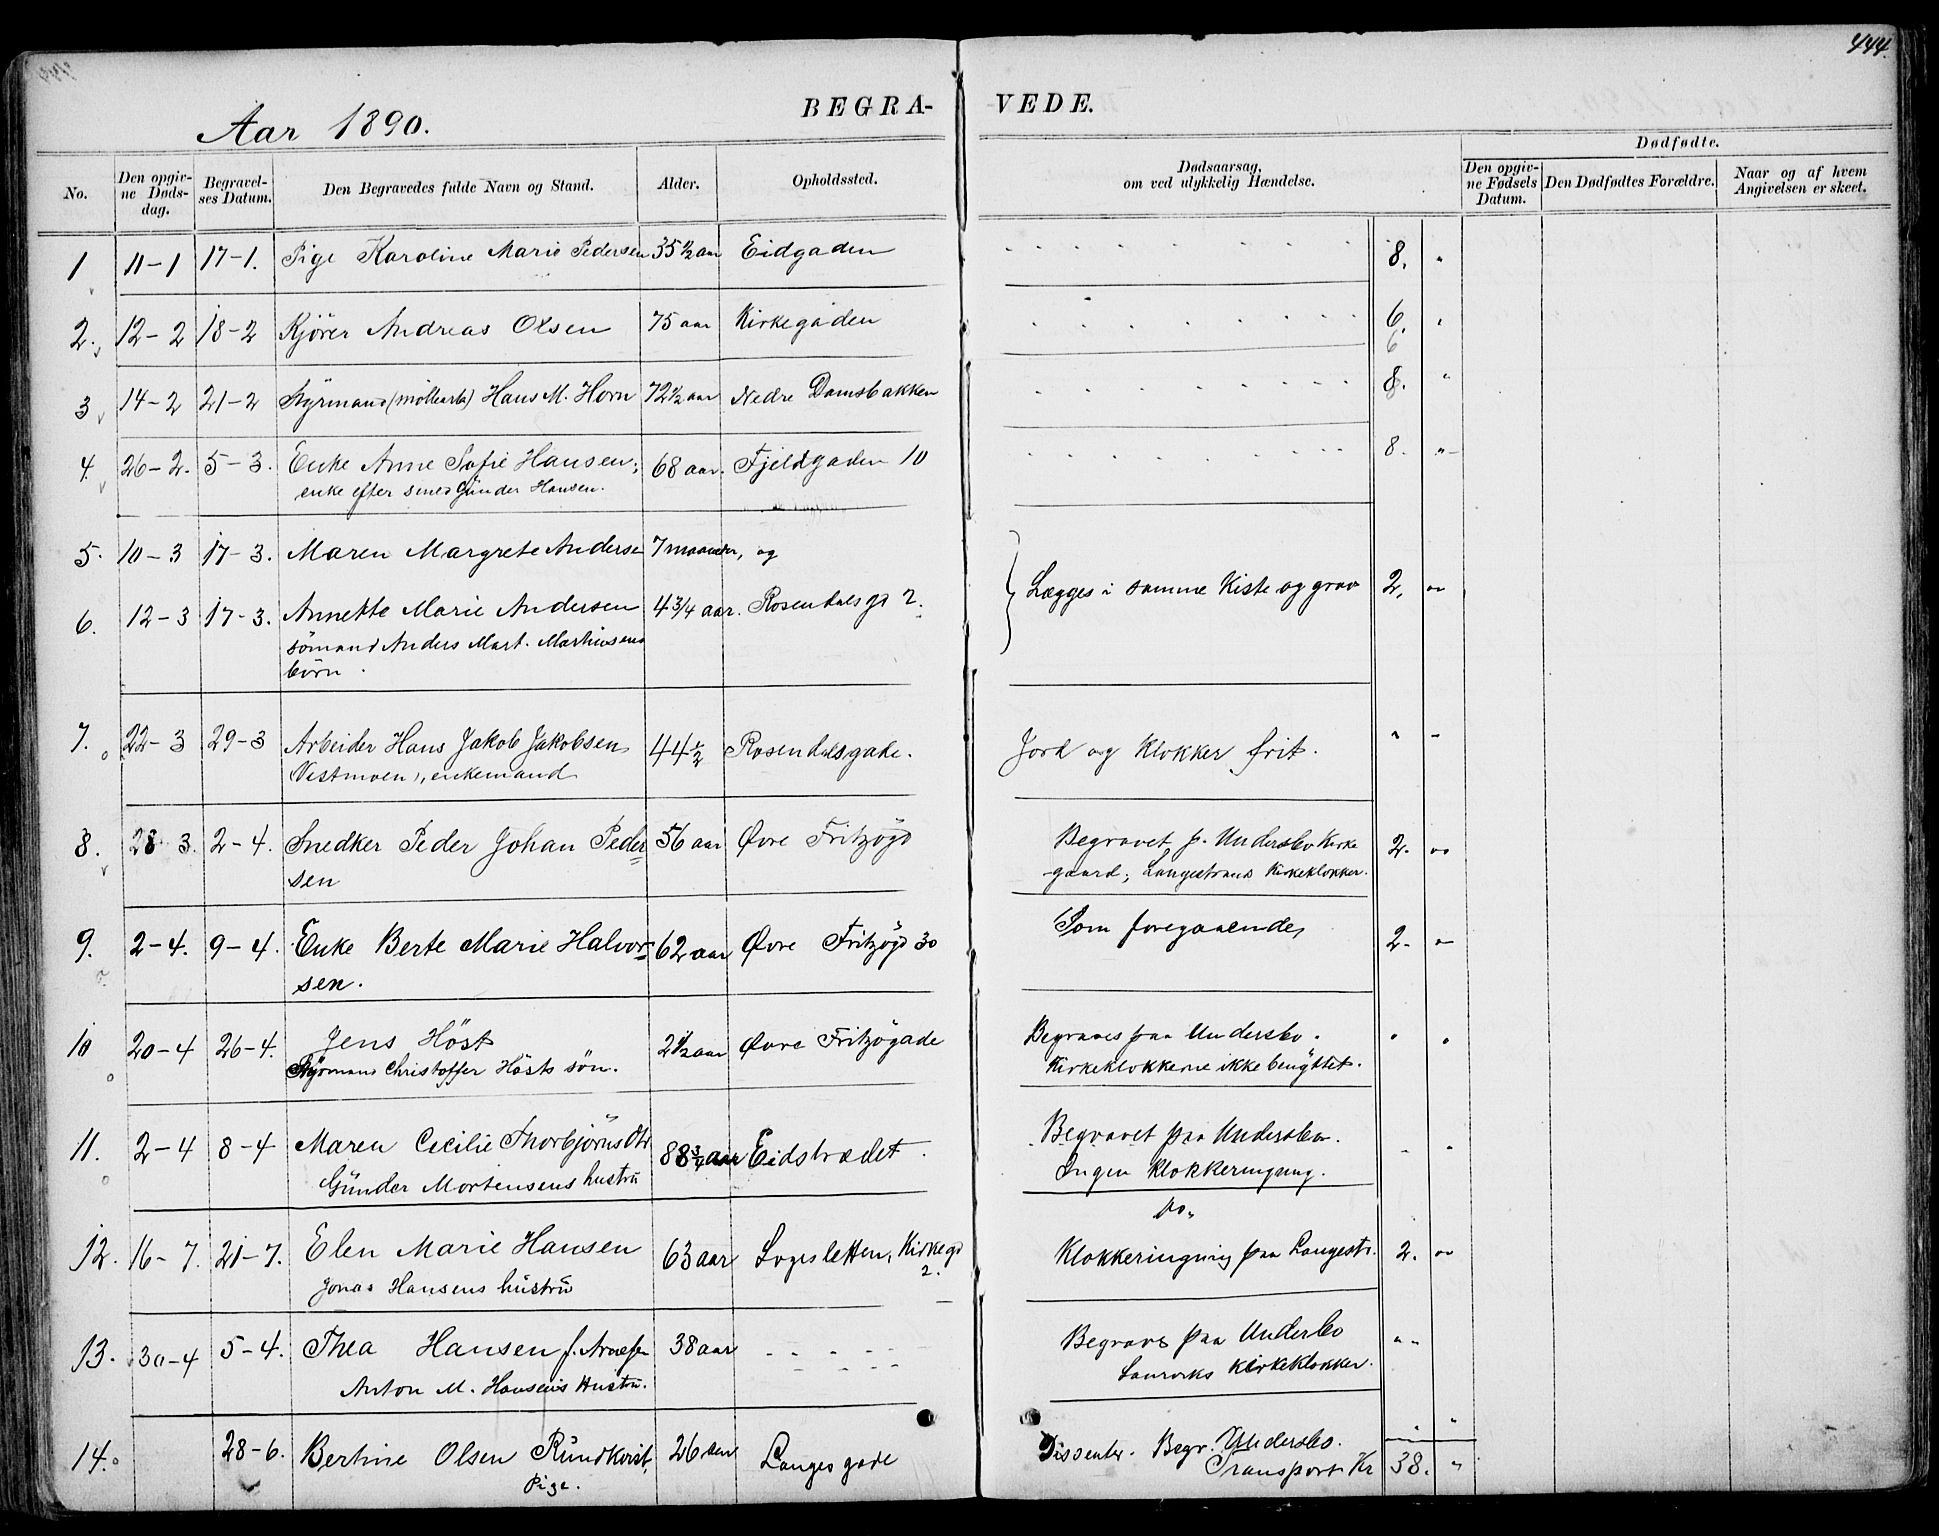 444.
Aar 1890. BEGRA- VEDE.
No. Den opgiv- ne Døds- dag. Begravel- ses Datum. Den Begravedes fulde Navn og Stand. Alder. Opholdssted. Dødsaarsag, om ved ulykkelig Hændelse. Dødfødte. Den opgiv- ne Fødsels Datum. Den Dødfødtes Forældre. Naar og af hvem Angivelsen er skeet.
1 11-1 17-1. Pige Karoline Marie Pedersen 35 1/2 aar Eidgaden 8. "
2. 12-2 18-2 Kjörer Andreas Olsen 75 aar Kirkegaden 6. "
6
3 14-2 21-2 Styrmand (möllearb) Hans M. Horn 72 1/2 aar Nedre Damsbakken 8. "
4. 26-2. 5-3. Enke Anne Sofie Hansen; 68 aar. Fjeldgaden 10 8. "
enke efter smed Günder Hansen.
5. 10-3 17-3. Maren Margrete Anderse 7 maaneder, og
6. 12-3 17-3. Annette Marie Andersen 4 3/4 aar. Rosendalsgd 2. Lægges i samme Kiste og grav 2, "
sömand Anders Mart. Marthinsens
börn.
7. 22-3 29-3 Arbeider Hans Jakob Jakobsen 44 1/2 Rosendalsgade. Jord og Klokker frit. " "
(Vestmoen), enkemand
8. 28-3. 2-4. Snedker Peder Johan Peder= 56 aar Øvre Fritzögd Begravet p. Undersbo Kirke 2. "
sen gaard; Langestrands Kirkeklokker.
9. 2-4. 9-4. Enke Berte Marie Halvor= 62 aar Øvre Fritzögd 30 Som foregaaende, 2. "
sen.
10 20-4 26-4. Jens Höst 2 1/2 aar Øvre Fritzögade Begraves paa Undersbo. " "
Styrmand Christoffer Hösts sön. Kirkeklokkerne ikke benyttet.
11. 2-4 8-4 Maren Cecilie Thorbjörnsdtr 88 3/4 aar Eidstrædet. Begravet paa Undersbo. " "
Günder Mortensens hustru Ingen Klokkeringning.
Do.
12. 16-7. 21-7. Elen Marie Hansen 63 aar Logesletten, Kirkegd 2. Klokkeringning paa Langestr. 2. "
Jonas Hansens hustru
13. 30-4 5-4. Thea Hansen f. Arnesen 38 aar Begraves paa Undersbo " "
Anton M. Hansens Hustru. Laurviks Kirkeklokker.
14. 28-6. Bertine Olsen Rundkvist, 26 aar Langesgade Dissenter. Begr. Undersbo. " "
Pige. Transport Kr 38. "